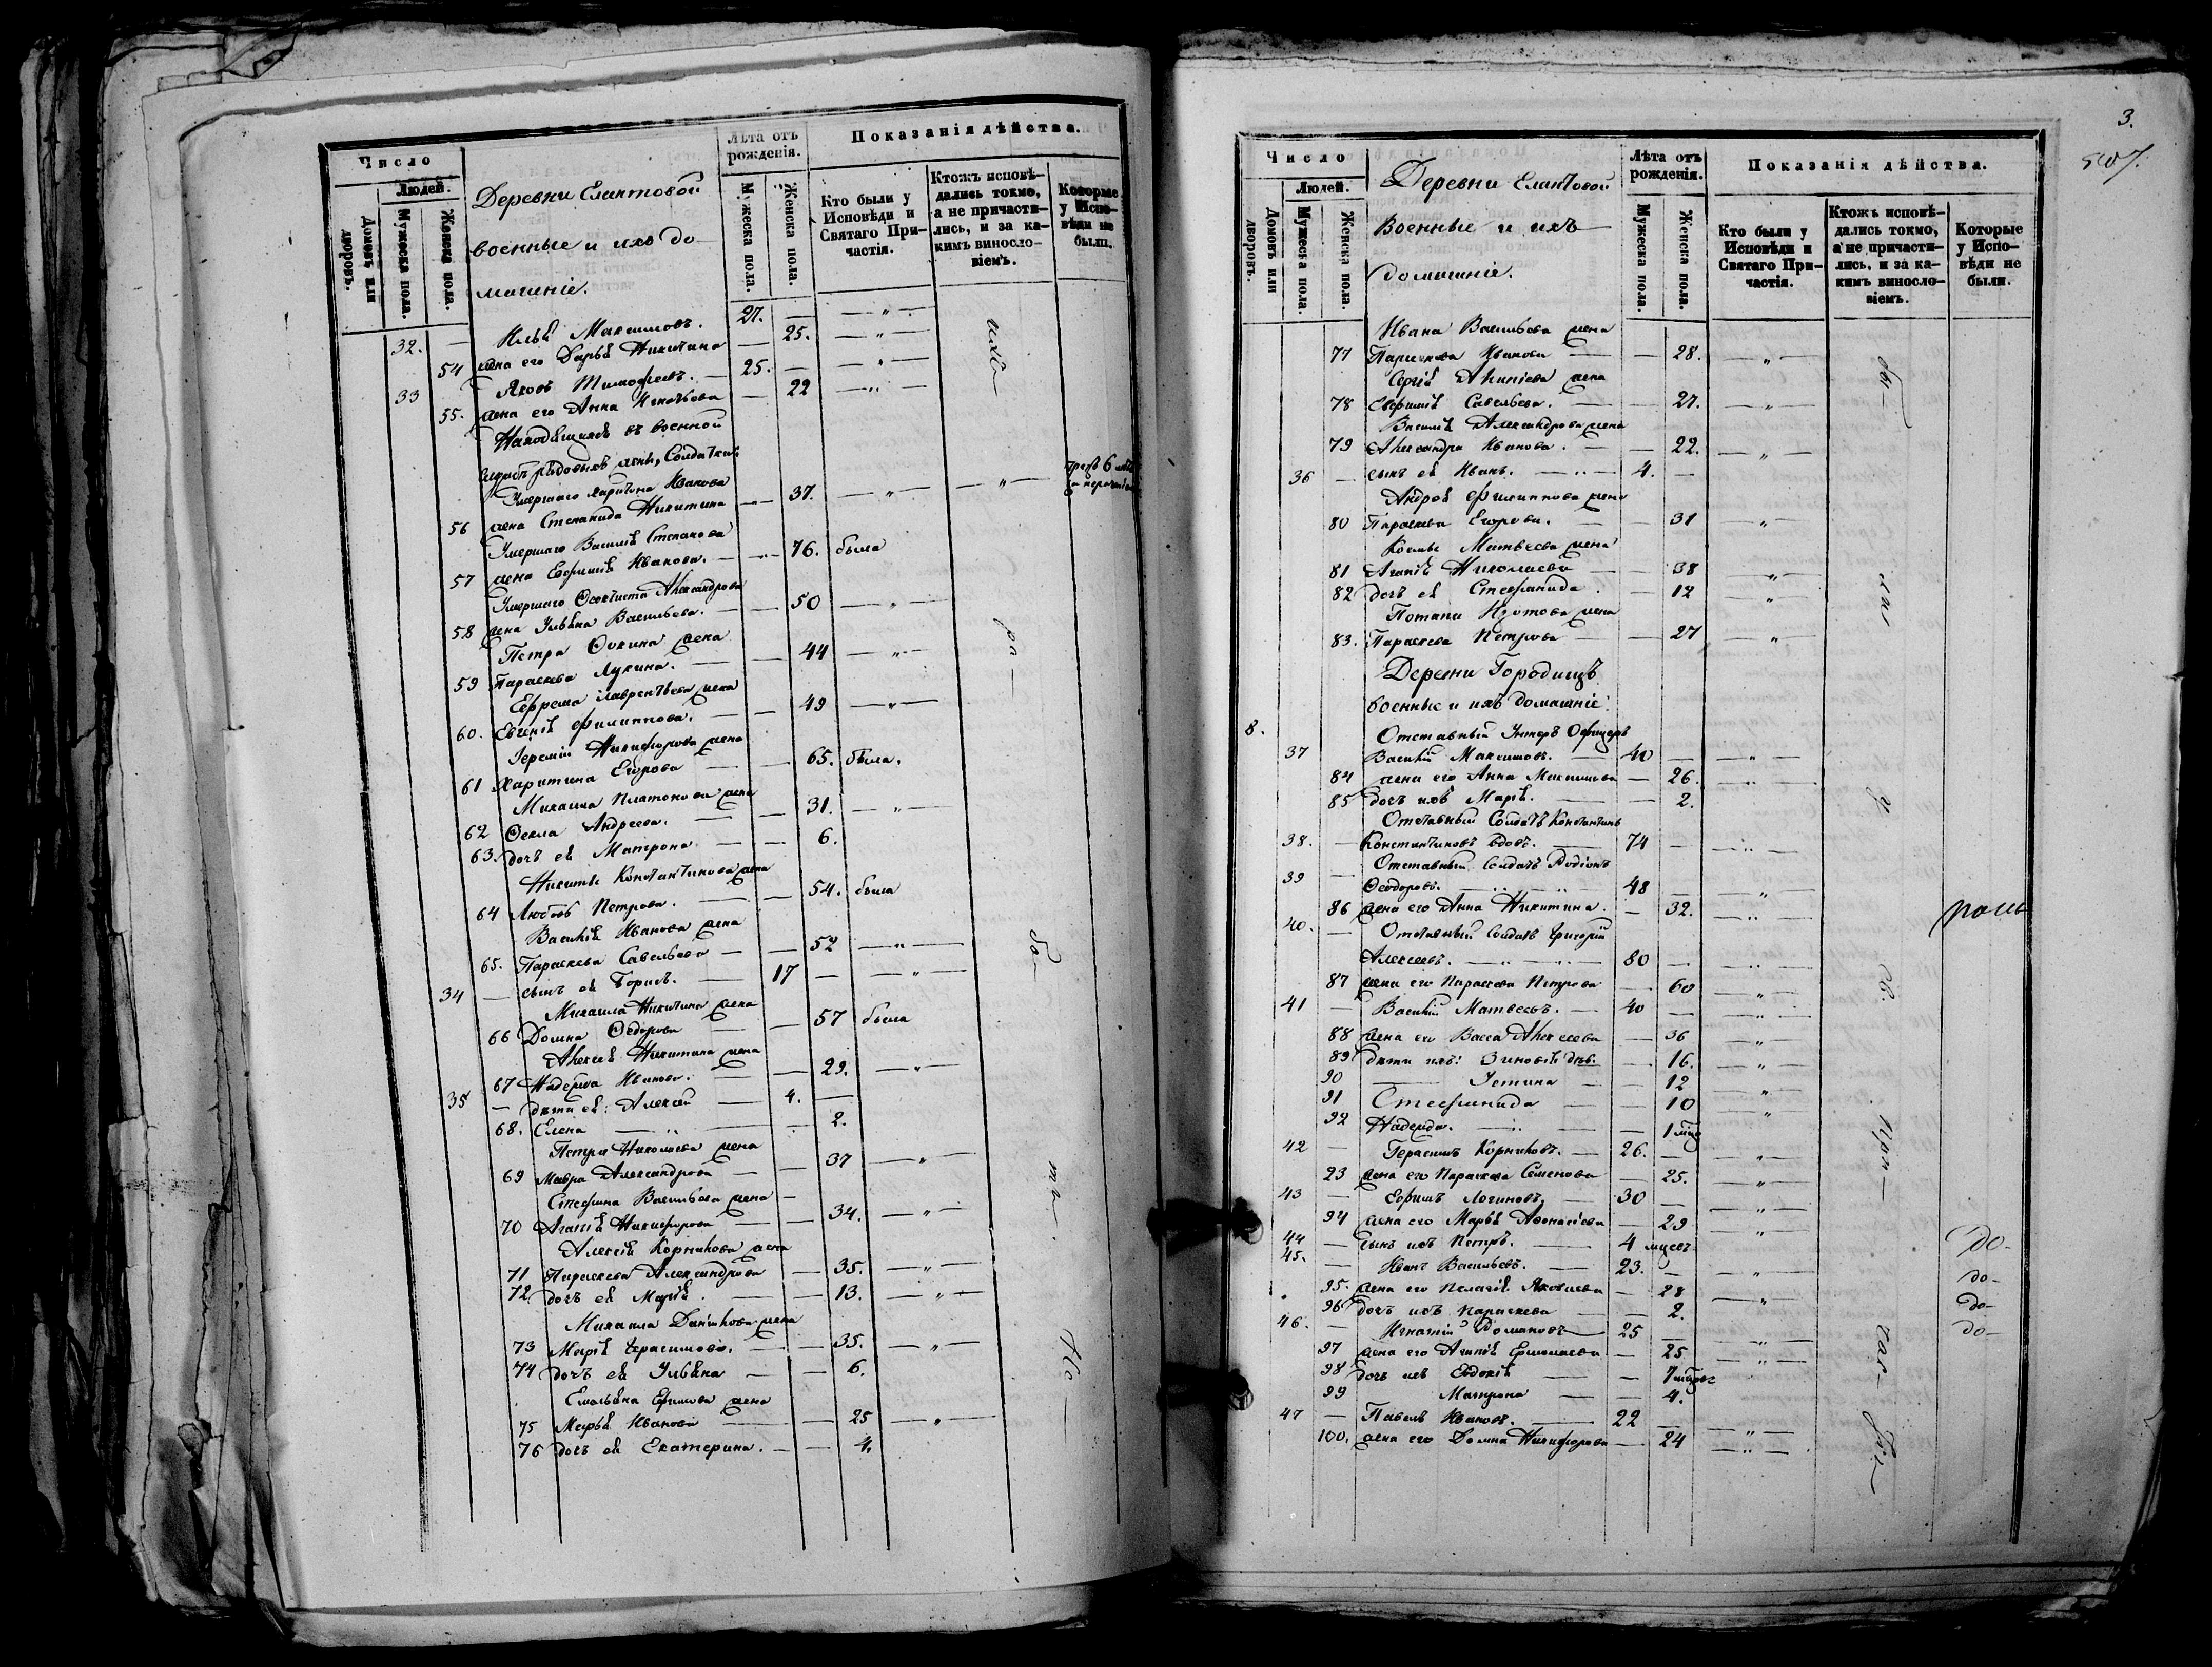 Число
Людей.
Домовъ или дворовъ.
Мужеска пола.
Женска пола.
Деревни Елантовой
военные и ихъ до-
машніе.
Лѣта отъ рожденія.
Мужеска пола.
Женска пола.
Показанія дѣйства.
Кто были у Исповѣди и Святаго При-частія.
Ктожъ исповѣ-дались токмо, а не причасти-лись, и за ка-кимъ винсло-віемъ.
Которые у Испо-вѣди не были.
32. — Илья Максимовъ. 27. — — „ —
54 жена его Дарья Никитина — 25. — „ —
33 Яковъ Тимофеевъ. — 25. — — „ —
55. жена его Анна Игнатьева — 22 — „ —
Находящихся въ военной
рядовыхъ жены, Солдатки:
Умершаго Харитона Иванова
56 жена Степанида Никитина — 37. — „ — — „ —
Умершаго Василія Степанова
57 жена Евфимія Иванова. — 76. была
Умершаго Феоктиста Александрова
58 жена Ульяна Васильева. — 50 — „ —
Петра жена
59 Параскева Лукина. — 44 — „ —
Ефрема Лаврентьева жена
60. Евгенія Филиппова. — 49 — „ —
Іереміи Никифорова жена
61 Харитина Егорова — 65. была.
Михаила Платонова жена
62 Фекла Андреева. — 31. — „ —
63. дочь ея Матрона — 6.
Никиты Константинова жена
64 Любовь Петрова. — 54. была
Василія Иванова жена
65. Параскева Савельева — 52 — „ —
34 — сынъ ея Борисъ. — 17 — — „ —
Михаила Никитина жена
66 Домна Федорова — 57 была
Алексѣя Никитина жена
67 Надежда Иванова. — 29. — „ —
35 — дѣти ея: Алексѣй — 4. —
68. Елена — „ — 2.
Петра Николаева жена
69 Мавра Александрова — 37 — „ —
Стефана Васильева жена —
70 Агафія Никифорова — 34. — „ —
Алексѣя Корнилова жена
71 Параскева Александрова — 35. — „ —
72 дочь ея Марія. — 13. — „ —
Михаила Данилова жена
73 Марія Герасимова. — 35. — „ —
74 дочь ея Ульяна — 6.
Емельяна Ефимова жена
75 Марья Иванова — 25 — „ —
76 дочь ея Екатерина. — 4.
3.
507.
Число
Людей.
Домовъ или дворовъ.
Мужеска пола.
Женска пола.
Деревни Елантовой
Военные и ихъ
домашніе.
Лѣта отъ рожденія.
Мужеска пола.
Женска пола.
Показанія дѣйства.
Кто были у Исповѣди и Святаго При-частія.
Ктожъ исповѣ-дались токмо, а не причасти-лись, и за ка-кимъ винсло-віемъ.
Которые у Испо-вѣди не были.
Ивана Васильева жена
77 Параскева Иванова — — 28. — „ —
Сергія жена
78 Евфимія Савельева. — — 27. — „ —
Василія Александрова жена
79 Александра Иванова. — — 22. — „ —
36 — сынъ ея Иванъ. — „ — 4. —
Андрея Филиппова жена
80 Параскева Егорова. — — 31 — „ —
Космы Матвеева жена
81 Агафія Николаева — — 38 — „ —
82 дочь ея Стефанида. — 12 — „ —
Потапа Изотова жена
83. Параскева Петрова — — 27 — „ —
Деревни Городищъ
военные и ихъ домашніе.
8. Отставный Унтеръ Офицеръ
37 Василій Максимовъ. — 40 — — „ —
84 жена его Анна Максимова — 26. — „ —
85 дочь ихъ Марія. — 2.
Отставный Солдатъ Константинъ
38. — Константиновъ вдовъ. — 74 — — „ —
Отставный Солдатъ Родіонъ
39 — Феодоровъ. — „ — 48 — — „ —
86 жена его Анна Никитина. — 32. — „ —
40. — Отставный Солдатъ Григорій
Алексеевъ. — „ — „ — 80 — — „ —
87 жена его Параскева Петрова — 60 — „ —
41 — Василій Матвеевъ. — 40 — — „ —
88 жена его Васса Алексеева — 36 — „ —
89 дѣти ихъ: Зиновія дѣв. — 16. — „ —
90 — Устина — — 12 — „ —
91 Стефанида — — 10 — „ —
92 Надежда. — „ — — 1
42 — Герасимъ Корниловъ. — 26. — — „ —
93 жена его Параскева Семенова — 25. — „ —
43 — Ефимъ Логиновъ — 30 — — „ —
94 жена его Марья Афонасіева — 29 — „ —
44 — сынъ ихъ Петръ. — 4 мѣсец.
45. — Иванъ Васильевъ. — 23. — — „ —
95. жена его Пелагія Яковлева — 28 — „ —
96 дочь ихъ Параскева — — 2.
46. — Игнатій Романовъ — 25 — — „ —
97 жена его Агафія Ермолаева — 25 — „ —
98 дочь ихъ Евдокія — — 7
99 Матрона — — 4.
47 — Павелъ Ивановъ. — 22 — — „ —
100. жена его Домна Никифорова — 24 — „ —
до-
до-
до-
до-